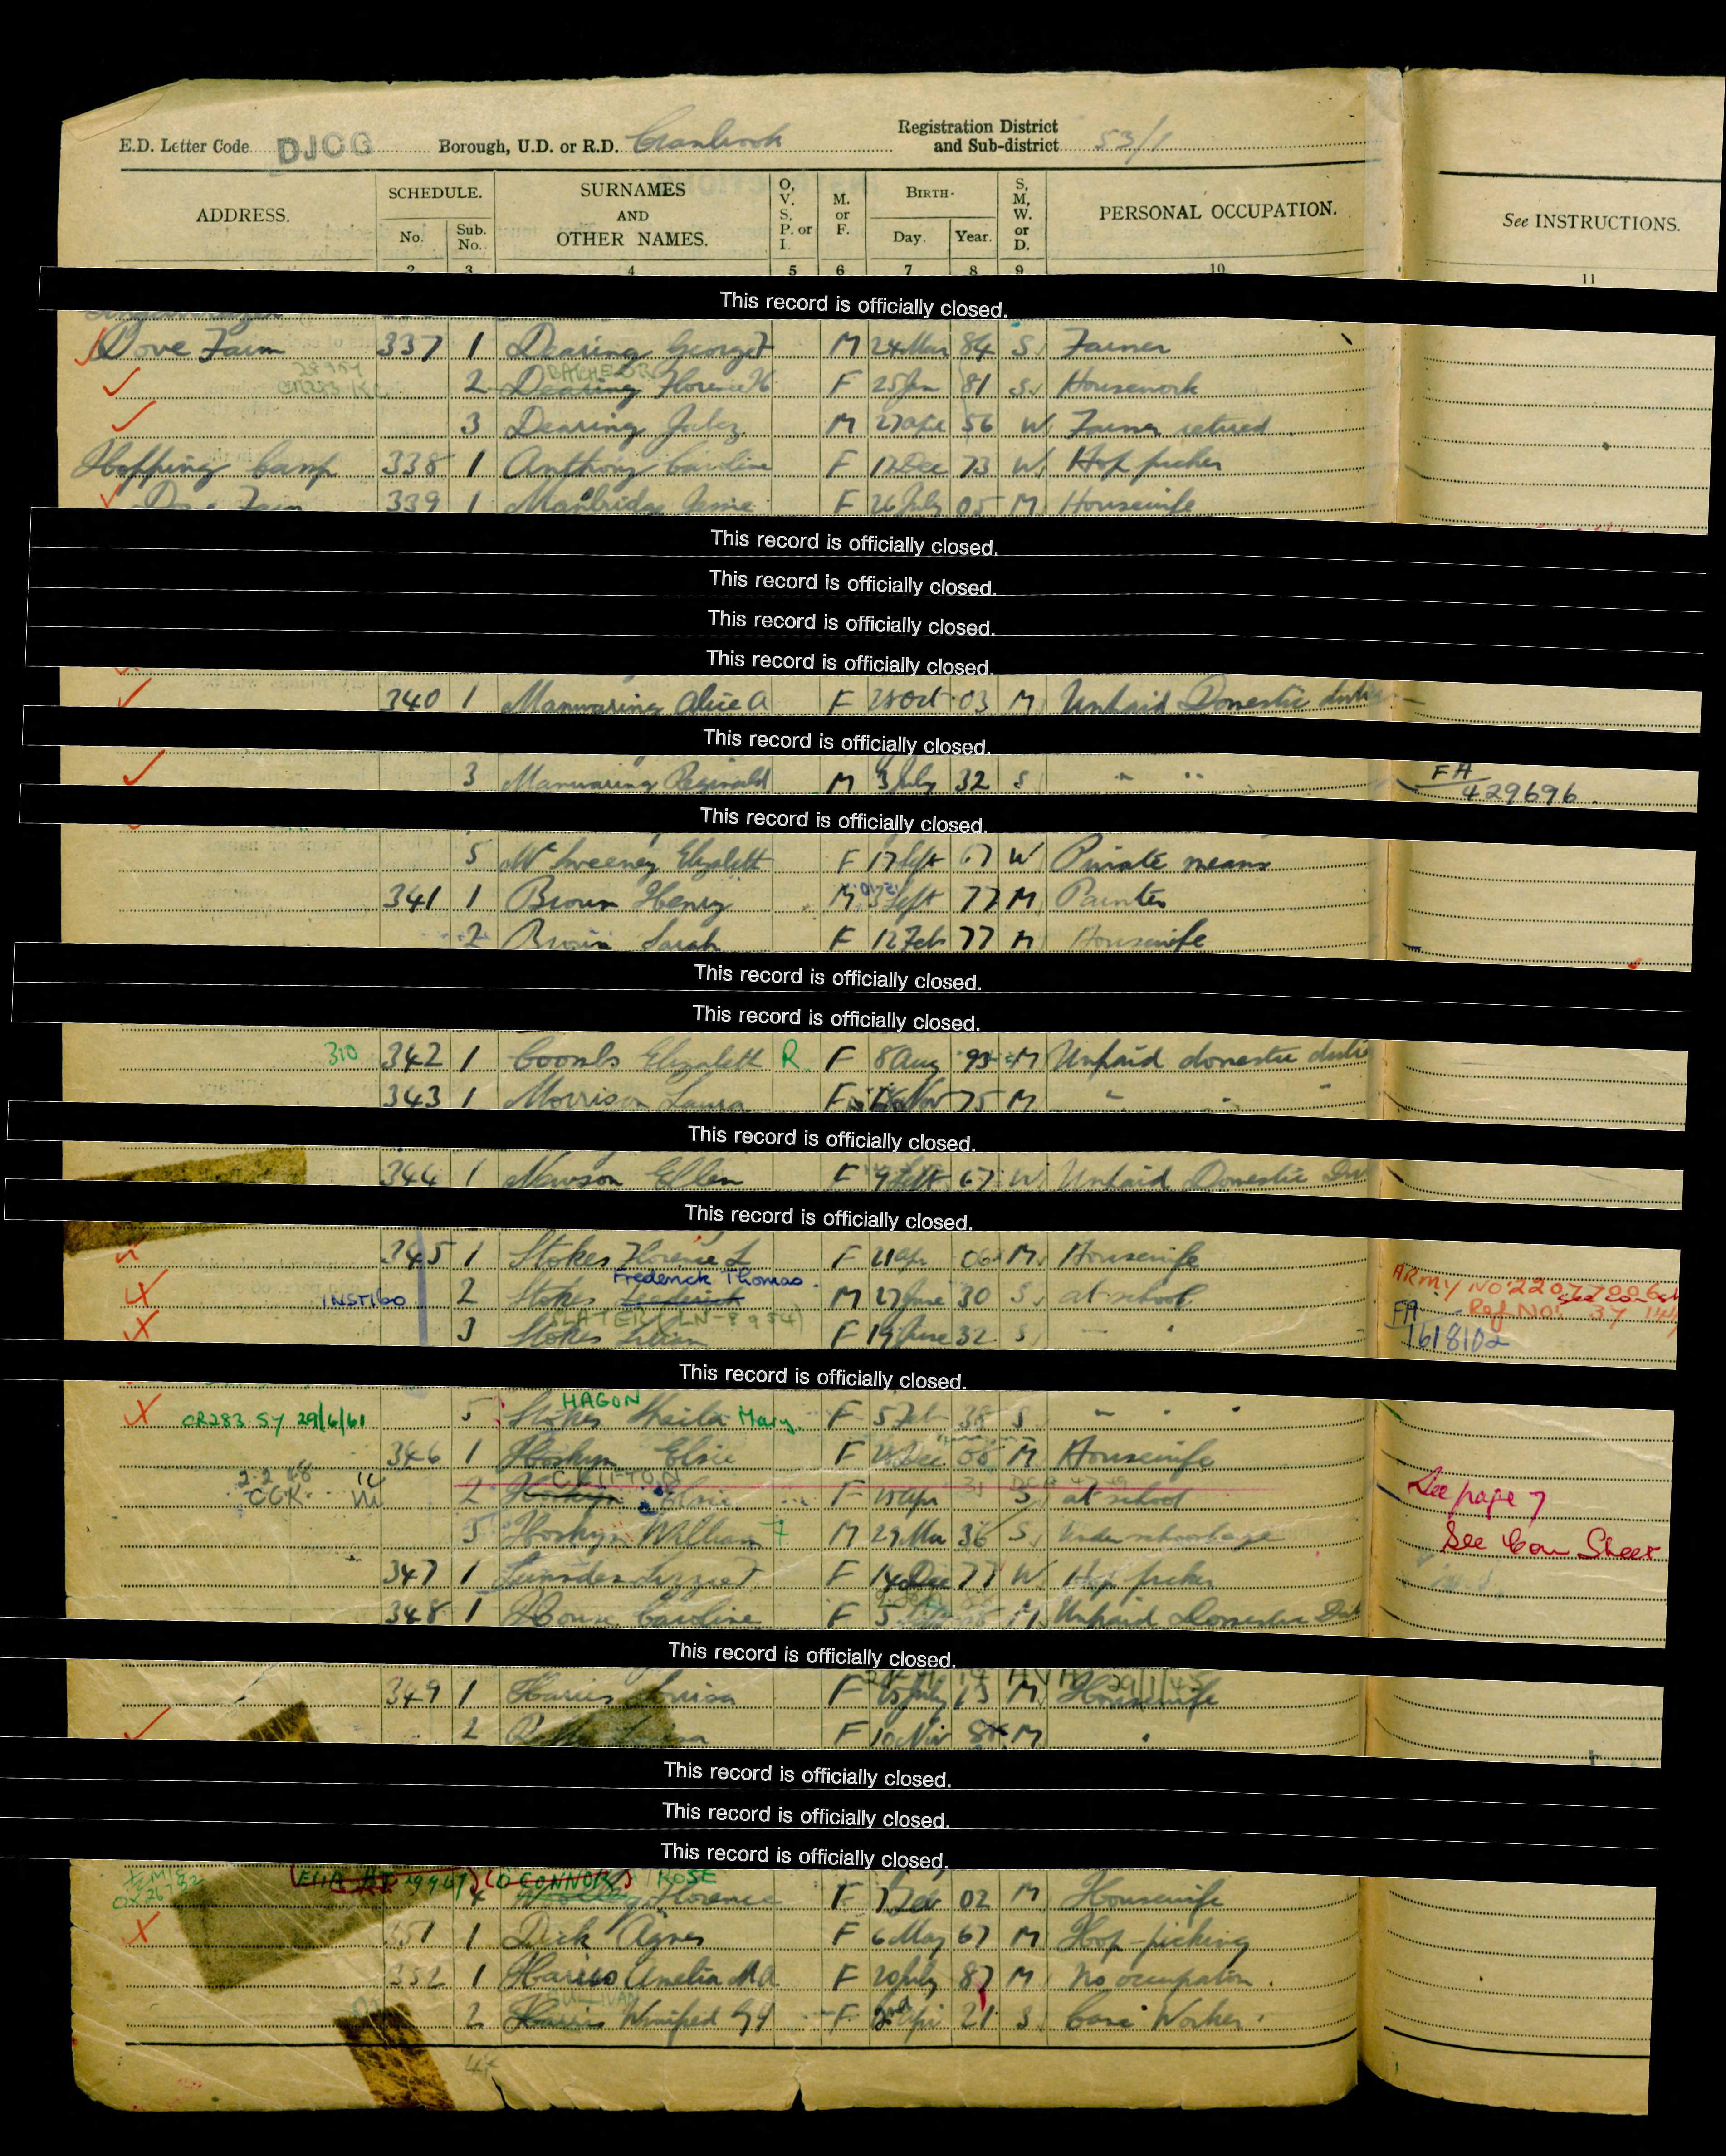 E.D. Letter Code DJCG Borough, U.D. or R.D. Cranbrook Registration District and Sub-district 53/1
ADDRESS. SCHEDULE. No. Sub. No. SURNAMES AND OTHER NAMES. O, V, S, P. or I. M. or F. BIRTH- Day. Year. S, M, W. or D. PERSONAL OCCUPATION. See INSTRUCTIONS.
2 3 4 5 6 7 8 9 10 11
This record is officially closed.
Dove Farm 337 1 Dearing George T M 24 Mar 84 S Farmer
BACHELOR
CR283 2 Dearing Florence K F 25 Jan 81 S Housework
3 Dearing Jabez M 27 Apl 56 W Farmer retired
Hopping Camp 338 1 Anthony Caroline F 12 Dec 73 W Hop picker
Farm 339 1 Manbridge Jessie F 26 July 05 M Housewife
This record is officially closed.
This record is officially closed.
This record is officially closed.
This record is officially closed.
340 1 Manwaring Alice A F 28 Oct 03 M Unpaid Domestic duties
This record is officially closed.
3 Manwaring Reginald M 3 July 32 S " " FA 429696
This record is officially closed.
5 McSweeney Elizabeth F 17 Sept 67 W Private means
341 1 Brown Henry M Sept 77 M Painter
2 Brown Sarah F 12 Feb 77 M Housewife
This record is officially closed.
This record is officially closed.
310 342 1 Coombs Elizabeth R F 8 Aug 93 M Unpaid domestic dutie
343 1 Morrison Laura F Nov 75 M " "
This record is officially closed.
344 1 Newson Ellen F 9 Sept 67 W Unpaid Domestic Du
This record is officially closed.
345 1 Stokes Florence L F 21 Apr 06 M Housewife
Frederick Thomas
INST160 2 Stokes Frederick M 27 June 30 S at school ARMY NO 22077006
SLATER (LN-8954) Ref NO: 37
3 Stokes Lilian F 19 June 32 S " " FA 1618102
This record is officially closed.
HAGON
CR283 SY 29/6/61 5 Stokes Sheila Mary F 5 Feb 38 S " " "
346 1 Hoskyn Elsie F Dec 08 M Housewife
2-2 48 CLIFTON
CCK 2 Hoskyn Elsie F Apr 31 S at school See page 7
3 Hoskyn William M 29 Mar 36 S Under school age See Con Sheet
347 1 Lizzie F 14 Dec 77 W Hop picker
348 1 Caroline F 5 M Unpaid Domestic Dut
This record is officially closed.
29/1/45
349 1 Harris Louisa F 15 July 13 M Housewife
2 F 10 Nov M "
This record is officially closed.
This record is officially closed.
This record is officially closed.
(O'CONNOR) ROSE
4 Florence F 7 02 M Housewife
351 1 Dick Agnes F 6 May 67 M Hop-picking
352 1 Harris Amelia M A F 20 July 87 M No occupation.
SULLIVAN
2 Harris Winifred G Y F 2nd Apr 21 S Worker.